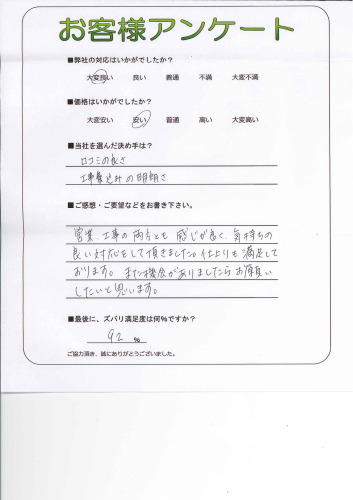 お客様アンケート
■弊社の対応はいかがでしたか?
大変良い 良い 普通 不満 大変不満
■価格はいかがでしたか?
大変安い 安い 普通 高い 大変高い
■当社を選んだ決め手は?
口コミの良さ
工事費込みの明朗さ
■ご感想・ご要望などをお書き下さい。
営業、工事の両方とも感じが良く、気持ちの
良い対応をして頂きました。仕上りも満足して
おります。また機会がありましたらお願い
したいと思います。
■最後に、ズバリ満足度は何%ですか?
92 %
ご協力頂き、誠にありがとうございました。